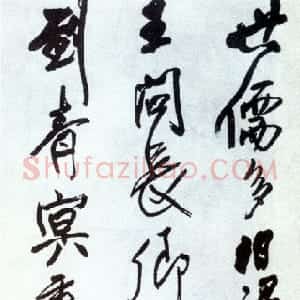 世儒多汩没
王問長卿
到青冥
Shufaziliao.com